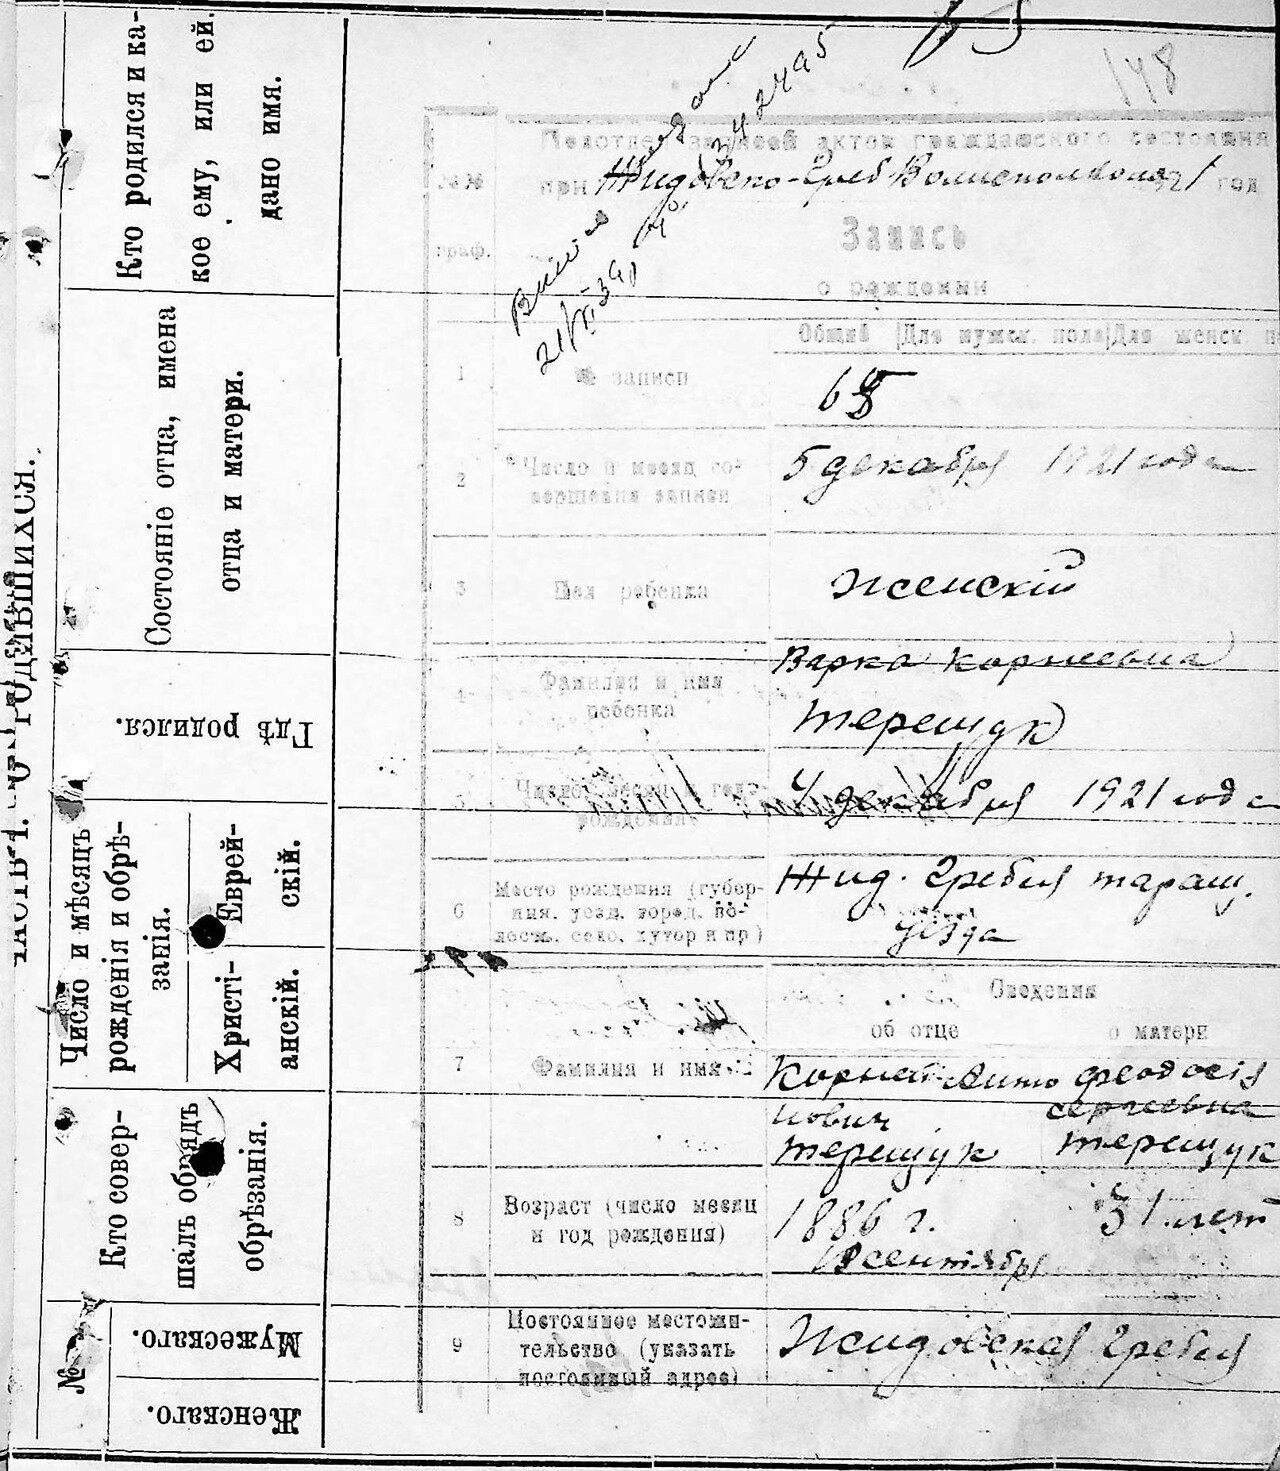 ЧАСТЬ I. О РОДИВШИХСЯ.
Кто родился и ка-
кое ему, или ей
дано имя.
Состояніе отца, имена
отца и матери.
Гдѣ родился.
Число и мѣсяцъ
рожденія и обрѣ-
занія.
Еврей-
скій.
Христі-
анскій.
Кто совер-
шалъ обрядъ
обрѣзанія.
№
Мужескаго.
Женскаго.
148
Подотдел записей актов гражданского состояния
№№
граф.
при Жидовско-Греб Волисполкома 1921 год
21/XI 39
Запись
о рождении
Общий Для мужск. пола Для женск. п
1
№ записи
2
Число и месяц со-
вершения записи
5 декабря 1921 года
3
Пол ребенка
Женскій
4
Фамилия и имя
ребенка
Варка Корнеевна
Терещук
5
Число, месяц и год
рождения
4 декабря 1921 года
6
Место рождения (губер-
ния, уезд, город, во-
лость, село, хутор и пр)
Жид. Гребля таращ.
уезда
Сведения
об отце о матери
7
Фамилия и имя
Корней Анто Феодосія
нович сергіевна
Терещук Терещук
8
Возраст (число месяц
и год рождения)
1886 г. 31 лет
сентября
9
Постоянное местожи-
тельство (указать
постоянный адрес)
Жидовская Гребля